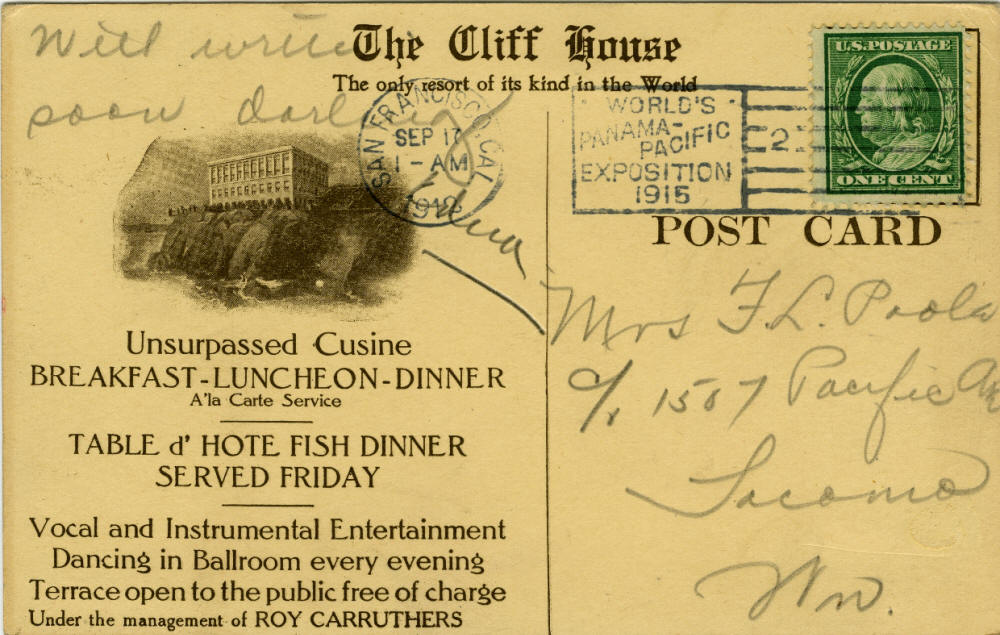 Will write
soon darling
The Cliff House
The only resort of its kind in the World
SAN FRANCISCO, CAL.
SEP 17
1 - AM
WORLD'S
PANAMA-
PACIFIC
EXPOSITION
1915
2
U.S. POSTAGE
ONE CENT
POST CARD
Unsurpassed Cusine
BREAKFAST-LUNCHEON-DINNER
A'la Carte Service
TABLE d' HOTE FISH DINNER
SERVED FRIDAY
Vocal and Instrumental Entertainment
Dancing in Ballroom every evening
Terrace open to the public free of charge
Under the management of ROY CARRUTHERS
Mrs F. L. Poole
1507 Pacific Av
Tacoma
Wn.